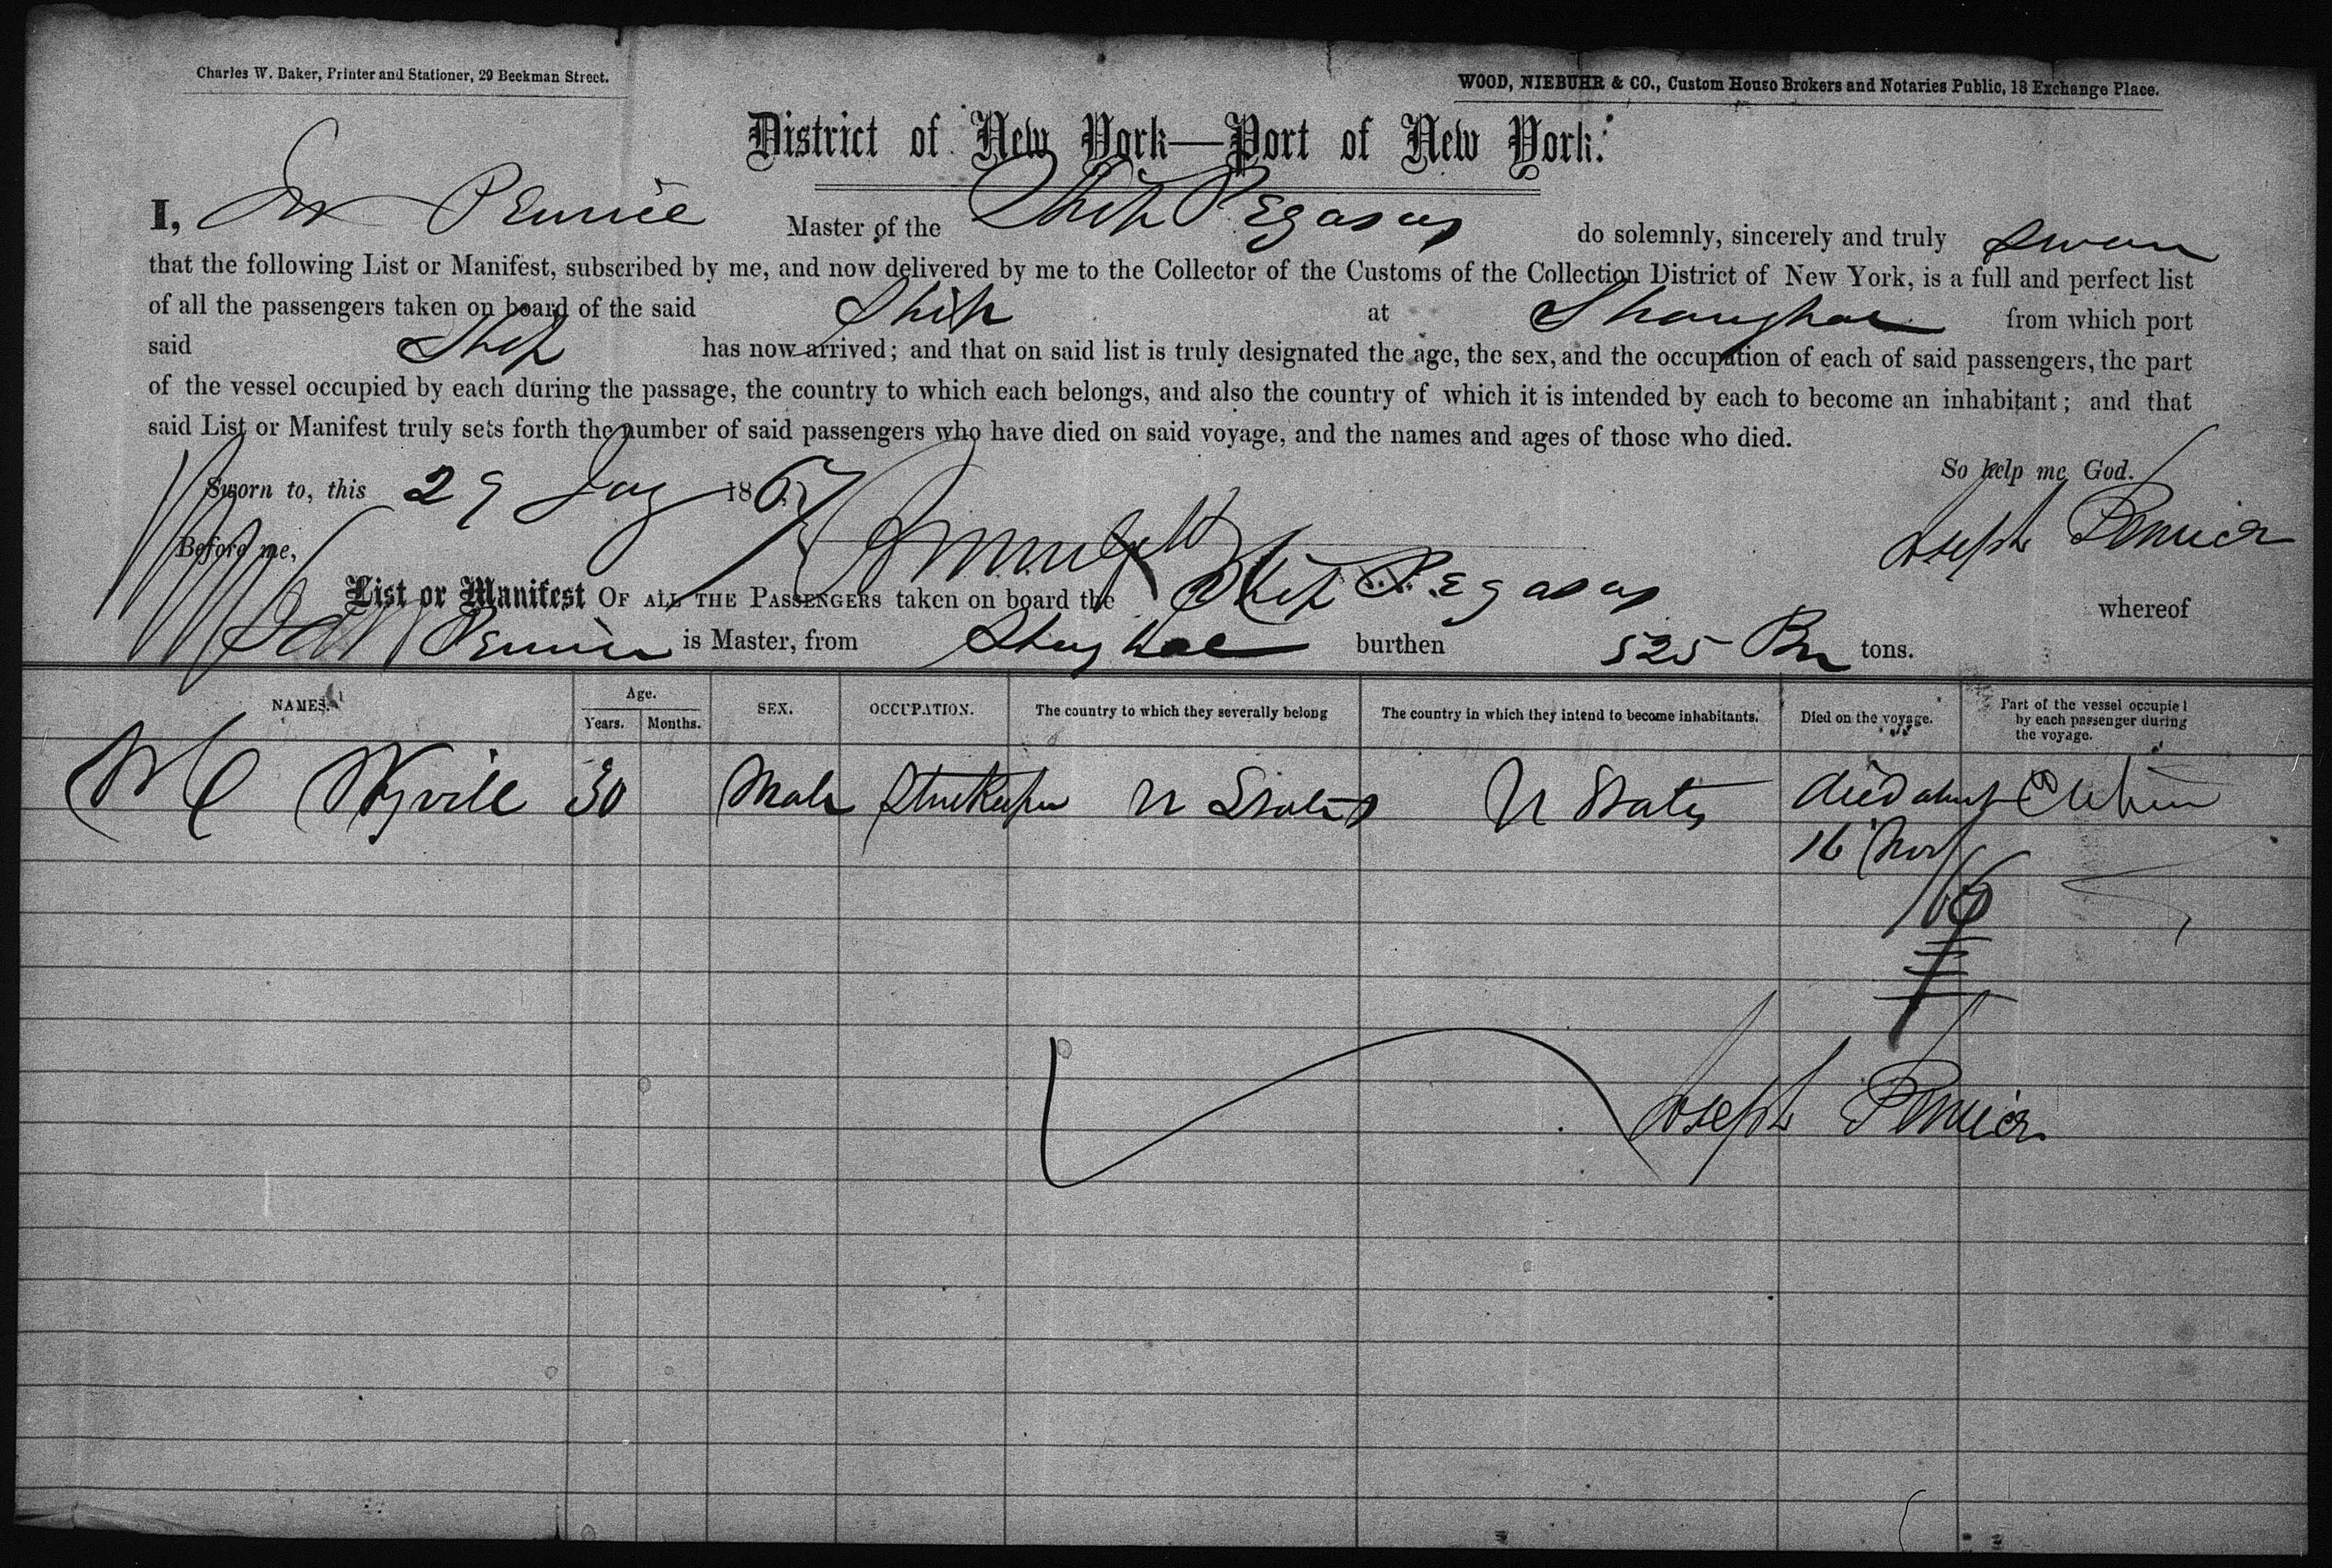 Charles W. Baker, Printer and Stationer, 29 Beekman Street.
WOOD, NIEBUHR & CO., Custom House Brokers and Notaries Public, 18 Exchange Place.
District of New York—Port of New York.
I, Master of the Ship Pegasus do solemnly, sincerely and truly swear
that the following List or Manifest, subscribed by me, and now delivered by me to the Collector of the Customs of the Collection District of New York, is a full and perfect list
of all the passengers taken on board of the said Ship at Shanghae from which port
said Ship has now arrived; and that on said list is truly designated the age, the sex, and the occupation of each of said passengers, the part
of the vessel occupied by each during the passage, the country to which each belongs, and also the country of which it is intended by each to become an inhabitant; and that
said List or Manifest truly sets forth the number of said passengers who have died on said voyage, and the names and ages of those who died.
So help me God.
Sworn to, this 29 Jay 1867
Joseph
Before me,
List or Manifest OF ALL THE PASSENGERS taken on board the Ship Pegasus whereof
is Master, from Shanghae burthen 525 tons.
NAMES. Age. Years. Months. SEX. OCCUPATION. The country to which they severally belong The country in which they intend to become inhabitants. Died on the voyage. Part of the vessel occupied by each passenger during the voyage.
30 Male Storekeeper U States U States died about Cabin
16 Nov
66
Joseph